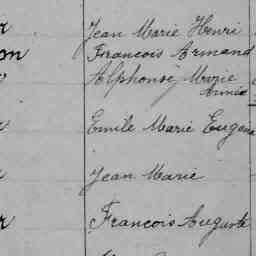 Jean Marie Henri
Francois Armand
Alphonse Marie
Aimée
Emile Marie Eugène
Jean Marie
Francois Auguste